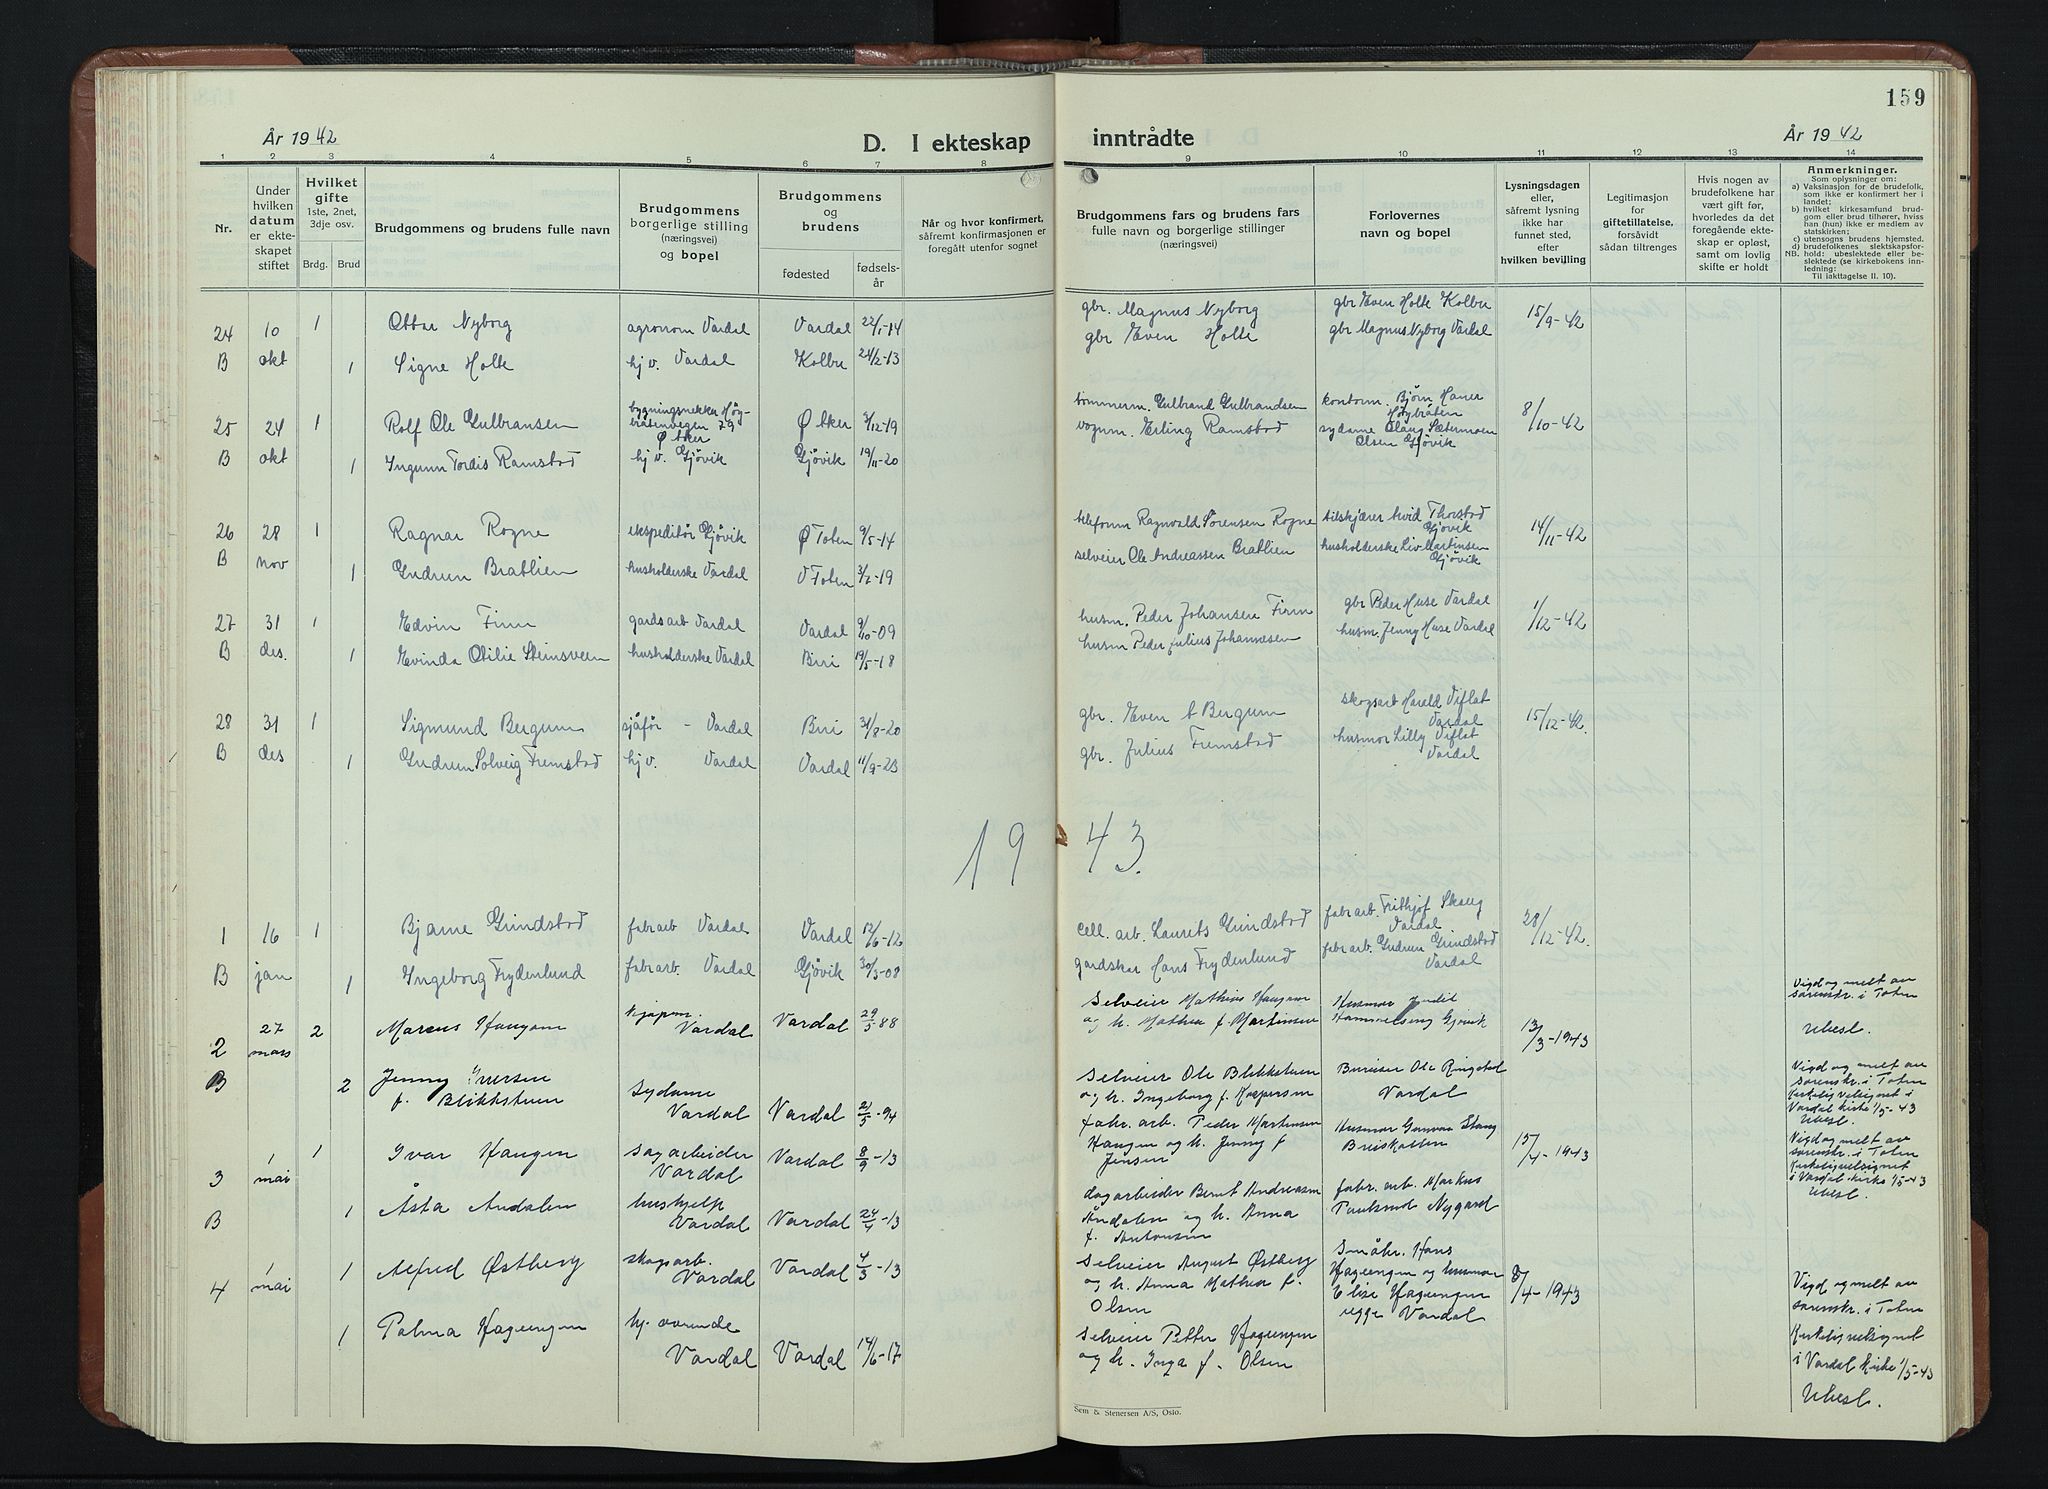 159
År 1942
D. I ekteskap
inntrådte
År 1942
1 2 3 4 5 6 7 8 9 10 11 12 13 14
Nr.
Under
hvilken
datum
er ekte-
skapet
stiftet
Hvilket
gifte
1ste, 2net,
3dje osv.
Brdg. Brud
Brudgommens og brudens fulle navn
Brudgommens
borgerlige stilling
(næringsvei)
og bopel
Brudgommens
og
brudens
fødested
fødsels-
år
Når og hvor konfirmert,
såfremt konfirmasjonen er
foregått utenfor sognet
Brudgommens fars og brudens fars
fulle navn og borgerlige stillinger
(næringsvei)
Forlovernes
navn og bopel
Lysningsdagen
eller,
såfremt lysning
ikke har
funnet sted,
efter
hvilken bevilling
Legitimasjon
for
giftetillatelse,
forsåvidt
sådan tiltrenges
Hvis nogen av
brudefolkene har
vært gift før,
hvorledes da det
foregående ekte-
skap er opløst,
samt om lovlig
skifte er holdt
Anmerkninger.
Som oplysninger om:
a) Vaksinasjon for de brudefolk,
som ikke er konfirmert her i
landet;
b) hvilket kirkesamfund brud-
gom eller brud tilhører, hviss
han (hun) ikke er medlem av
statskirken;
c) utensogns brudens hjemsted.
d) brudefolkenes slektskapsfor-
NB. hold: ubeslektede eller be-
slektede (se kirkebokens inn-
ledning:
Til iakttagelse II. 10).
24 10 1 Ottar Nyborg agronom Vardal Vardal 22/1-14 gbr. Magnus Nyborg gbr Even Holte Kolbu 15/9-42
B okt 1 Signe Holte hj v. Vardal Kolbu 24/2-13 gbr Even Holte gbr Magnus Nyborg Vardal
25 24 1 Rolf Ole Gulbransen bygningsnekker Høy-
bråtenvegen 79
Ø Aker Ø Aker 3/12-19 tømmerm. Gulbrand Gulbrandsen kontorm. Bjørn Haner
Høybråten 8/10-42
B okt 1 Ingunn Tordis Ramstad hj v. Gjøvik Gjøvik 19/11-20 vognm. Erling Ramstad sydame Olaug Sætermoen
Olsen Gjøvik
26 28 1 Ragnar Rogne ekspeditør Gjøvik Ø Toten 9/5-14 Ragnvald Sørensen Rogne Thorstad
Gjøvik 14/11-42
B nov 1 Gudrun Bratlien husholderske Vardal V Toten 3/2-19 selveier Ole Andreassen Bratlien husholderske Liv Martinsen
Gjøvik
27 31 1 Edvin Finn gardsarb Vardal Vardal 9/10-09 husm. Peder Johansen Finn gbr Peder Huse Vardal 1/12-42
B des. 1 Evinda Otilie Steinsveen husholderske Vardal Biri 19/5-18 husm Peder Julius Johannesen husm. Jenny Huse Vardal
28 31 1 Sigmund Bergum sjåfør - Vardal Biri 31/8-20 gbr. Even Bergum skogsarb Harald Viflat
Vardal 15/12-42.
B des 1 Gudrun Solveig Fremstad hj v. Vardal Vardal 11/9-23 gbr. Julius Fremstad husmor Lilly Viflat
Vardal
19 43.
1 16 1 Bjarne Grindstad fabrarb Vardal Vardal 12/6-12 cell. arb. Laurits Grindstad fabr arb. Frithjof Skaug
Vardal 28/12-42.
B jan 1 Ingeborg Frydenlund fabrarb. Vardal Gjøvik 30/3-08 gardskar Hans Frydenlund fabr arb. Gudrun Grindstad
Vardal
2 27 mars 2 Marcus Haugom kjøpm.
Vardal Vardal 29/5 88 Selveier Mathias Haugom
og h. Mathea f. Martinsen Husmor
Gjøvik 13/3-1943 Vigd og melt av
sorenskr. i Toten
Ubesl.
B 2 Jenny Iversen
f. Blikkstuen Sydame
Vardal Vardal 21/5-94 Selveier Ole Blikkstuen
og h. Ingeborg f. Kaspersen Ole Ringstad
Vardal Vigd og melt av
sorenskr. i Toten
Kirkelig velsignet i
Vardal kirke 1/5-43
Ubesl.
3 1 mai 1 Ivar Haugen sagarbeider
Vardal Vardal 8/9-13 fabr. arb. Peder Martinsen
Haugen og h. Jenny f
Jensen Husmor Gunvor Stang
Briskotten 15/4-1943 Vigd og melt av
sorenskr. i Toten
Kirkelig velsignet
i Vardal kirke 1/5-43
Ubesl.
B 1 Åsta Åndalen hushjelp
Vardal Vardal 24/4-13 dagarbeider Bernt Andreasen
Åndalen og h. Anna
f. Antonsen fabr. arb. Markus
Nygard
4 1 mai 1 Alfred Østberg skogsarb.
Vardal Vardal 4/3-13 Selveier August Østberg
og h. Anna Mathea f.
Olsen Småbr. Hans
Hageengen og husmor
Elise Hageengen
begge Vardal 8/4-1943 Vigd og melt av
sorenskr. i Toten
Kirkelig velsignet
i Vardal kirke 1/5-43
Ubesl.
1 Palma Hageengen hj. værende
Vardal Vardal 14/6-17 Selveier Petter Hageengen
og h. Inga f. Olsen
Sem & Stenersen A/S, Oslo.